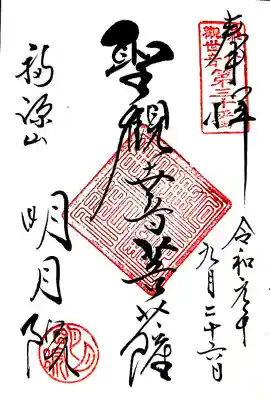 奉拝
觀世音第三十番
令和元年
九月二十六日
聖観世音菩薩
福源山
明月院